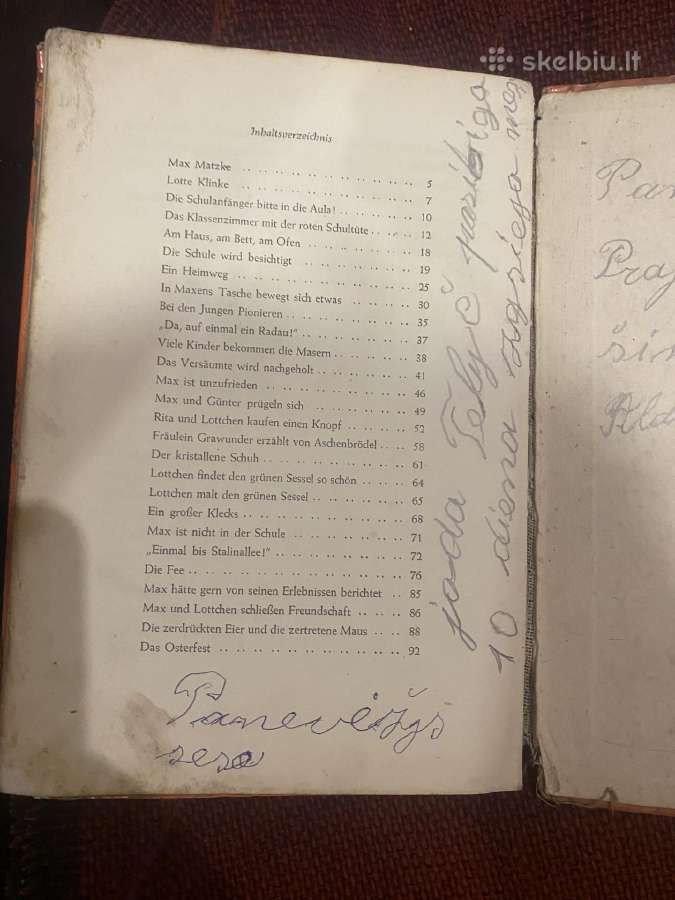 skelbiu.lt
Inhaltsverzeichnis
Max Matzke .. .. .. .. .. .. .. .. .. .. 5
Lotte Klinke .. .. .. .. .. .. .. .. .. .. 7
Die Schulanfänger bitte in die Aula! .. .. .. .. .. 10
Das Klassenzimmer mit der roten Schultüte .. .. .. 12
Am Haus, am Bett, am Ofen .. .. .. .. .. .. 18
Die Schule wird besichtigt .. .. .. .. .. .. .. 19
Ein Heimweg .. .. .. .. .. .. .. .. .. 25
In Maxens Tasche bewegt sich etwas .. .. .. .. .. 30
Bei den Jungen Pionieren .. .. .. .. .. .. .. 35
„Da, auf einmal ein Radau!“ .. .. .. .. .. .. 37
Viele Kinder bekommen die Masern .. .. .. .. .. 38
Das Versäumte wird nachgeholt .. .. .. .. .. .. 41
Max ist unzufrieden .. .. .. .. .. .. .. .. 46
Max und Günter prügeln sich .. .. .. .. .. .. 49
Rita und Lottchen kaufen einen Knopf .. .. .. .. 52
Fräulein Grawunder erzählt von Aschenbrödel .. .. 58
Der kristallene Schuh .. .. .. .. .. .. .. .. 61
Lottchen findet den grünen Sessel so schön .. .. .. 64
Lottchen malt den grünen Sessel .. .. .. .. .. .. 65
Ein großer Klecks .. .. .. .. .. .. .. .. .. 68
Max ist nicht in der Schule .. .. .. .. .. .. .. 71
„Einmal bis Stalinallee!“ .. .. .. .. .. .. .. 72
Die Fee .. .. .. .. .. .. .. .. .. .. .. 76
Max hätte gern von seinen Erlebnissen berichtet .. 85
Max und Lottchen schließen Freundschaft .. .. .. 86
Die zerdrückten Eier und die zertretene Maus .. .. 88
Das Osterfest .. .. .. .. .. .. .. .. .. .. 92
Panevėžys
sesa
10 diena
Pan
Praj
šim
Ald